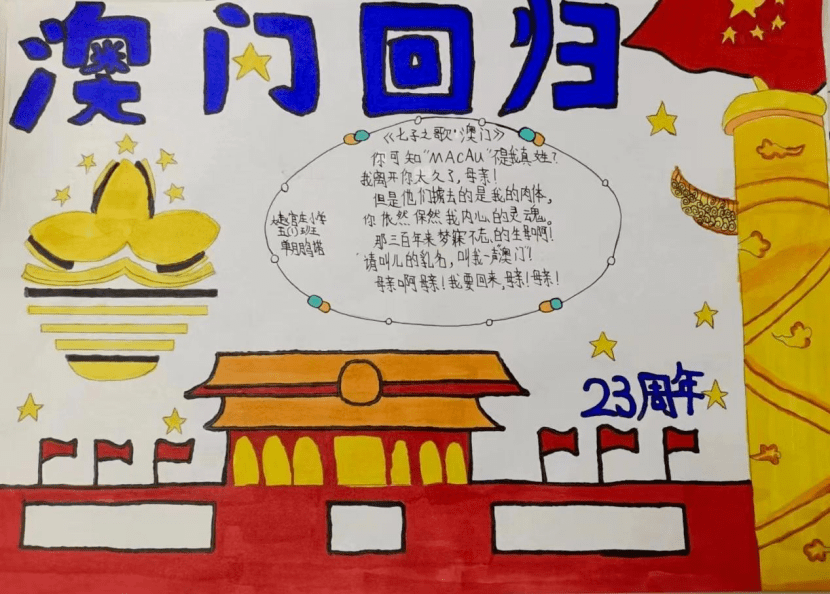 澳门回归
《七子之歌·澳门》
你可知"MACAU"不是我真姓?
我离开你太久了,母亲!
但是他们掳去的是我的肉体,
你依然保然我内心的灵魂。
那三百年来梦寐不忘的生母啊!
请叫儿的乳名,叫我一声"澳门"!
母亲啊母亲!我要回来,母亲!母亲!
官庄小学
五(1)班
23周年